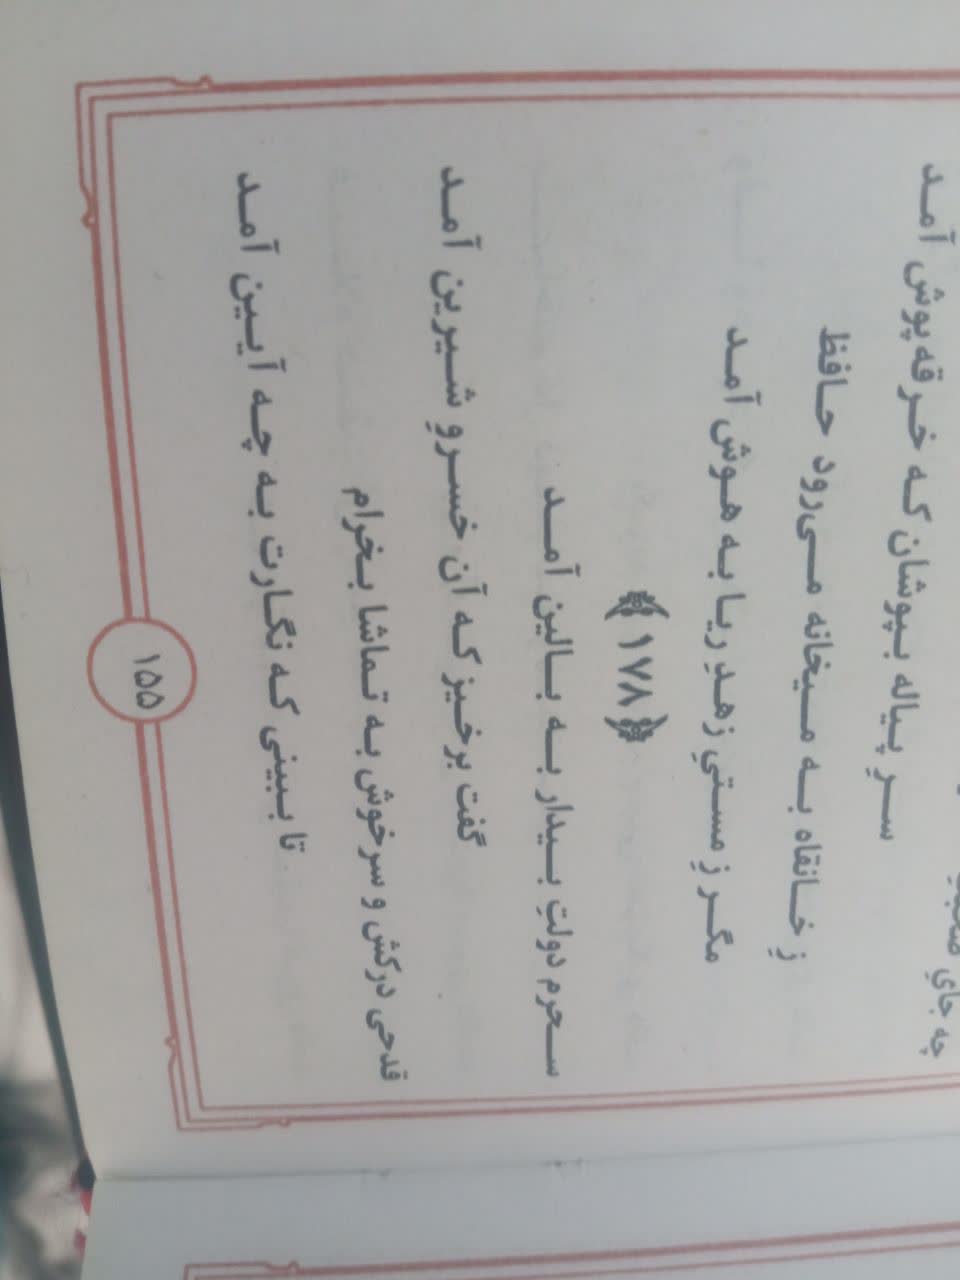 چه جایِ صحبتِ
سرِ پیاله بپوشان که خرقه‌پوش آمد
زِ خانقاه به میخانه می‌رود حافظ
مگر زِ مستیِ زهدِ ریا به هوش آمد
﴿۱۷۸﴾
سحرم دولتِ بیدار به بالین آمد
گفت برخیز که آن خسروِ شیرین آمد
قدحی درکش و سرخوش به تماشا بخرام
تا ببینی که نگارت به چه آیین آمد
۱۵۵